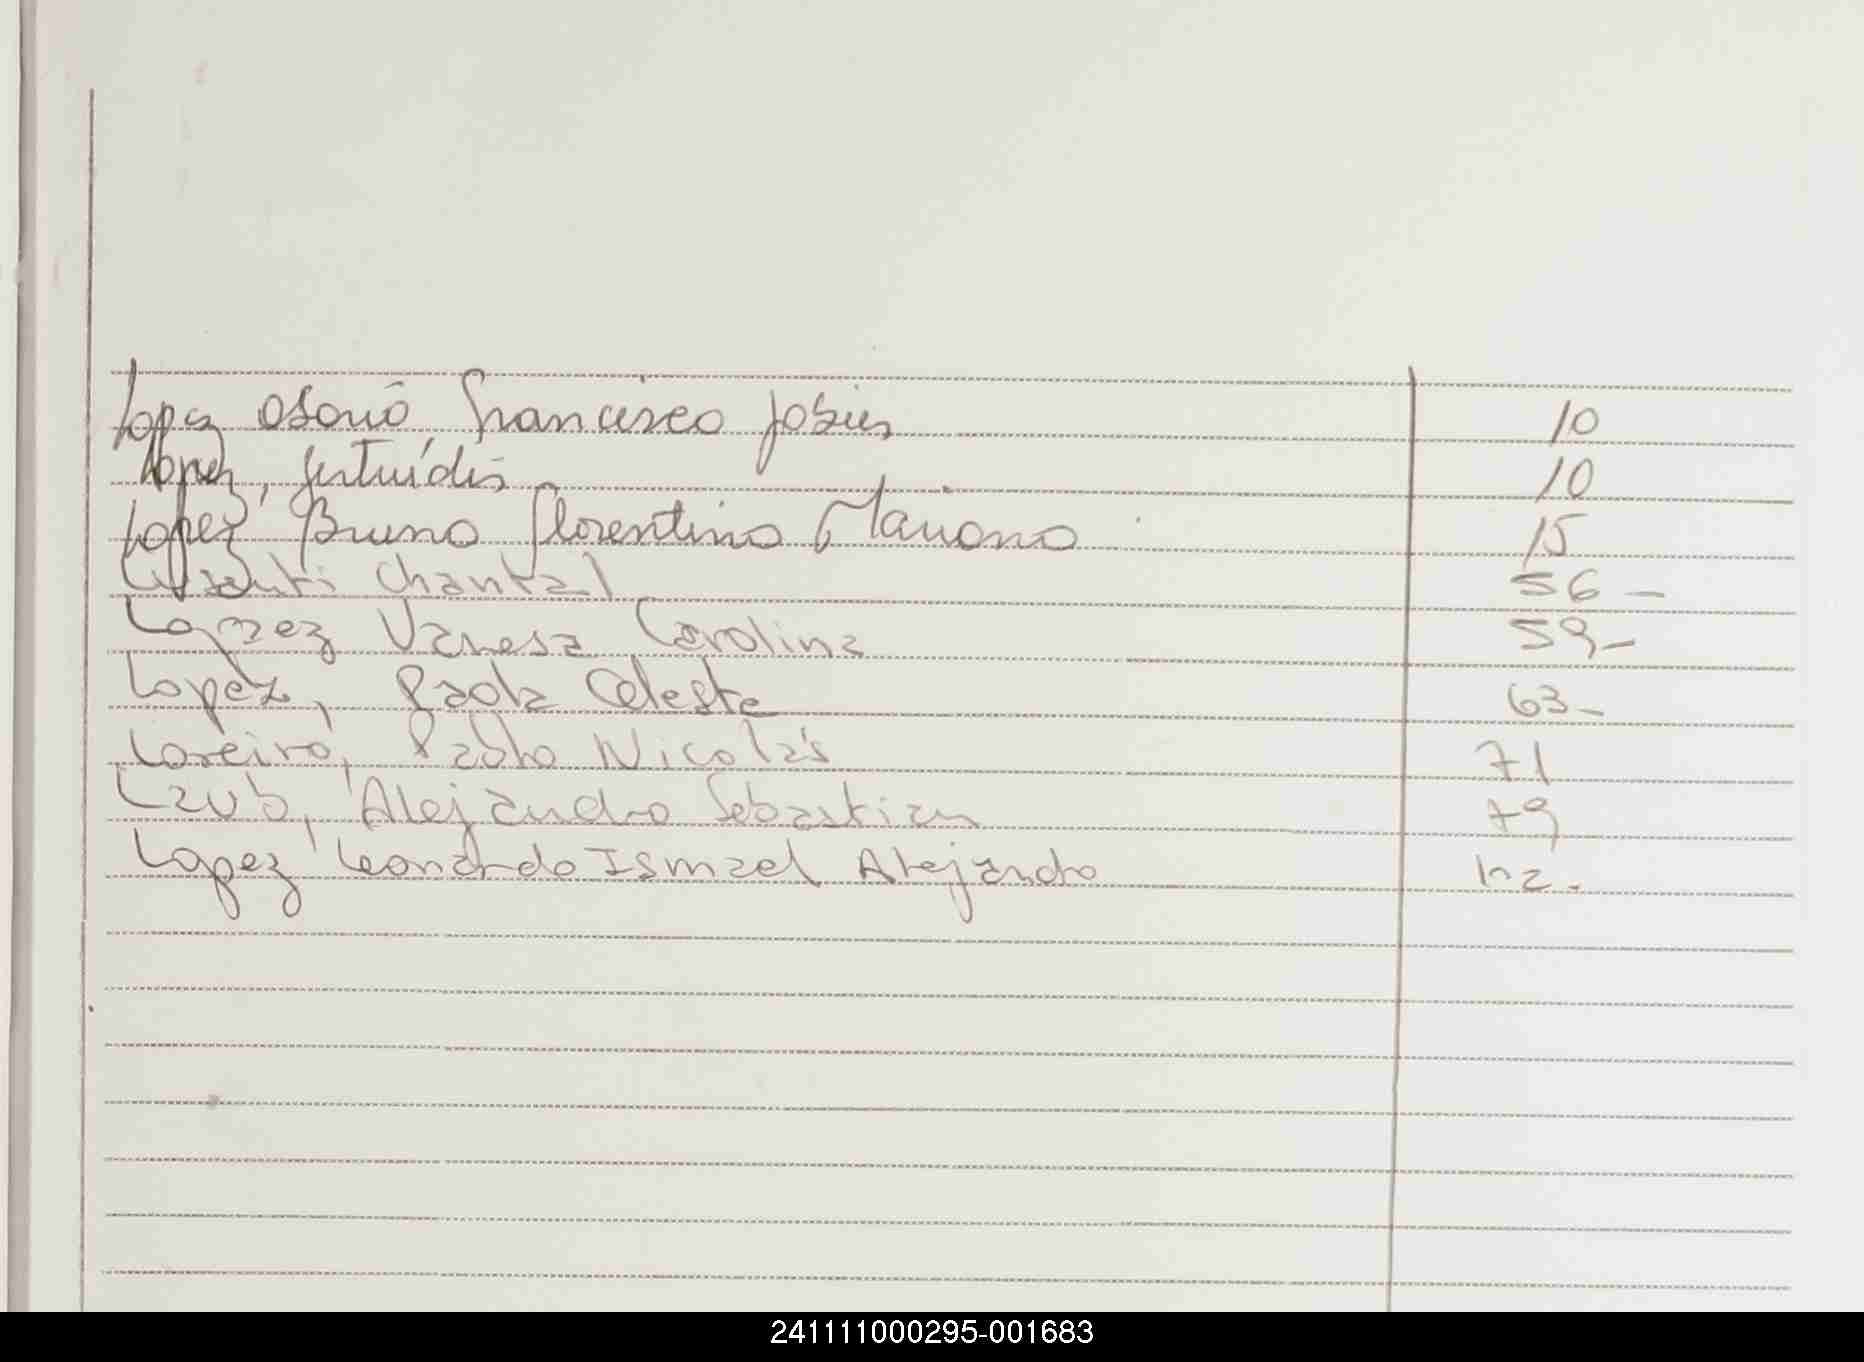 Lopez Osorio, Francisco Jabier 10
Lopez, Gertrudis 10
Lopez, Bruno Florentino Mariano 15
Chantal 56 -
Lopez Vanesa Carolina 59 -
Lopez, Paola Celeste 63 -
Loreiro, Pablo Nicolás 71
Laub, Alejandro Sebastian 79
Lopez Leonardo Ismael Alejandro
241111000295-001683